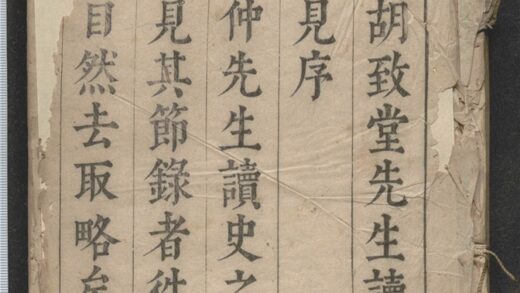 胡致堂先生讀
見序
仲先生讀史之
見其節錄者
然去取略